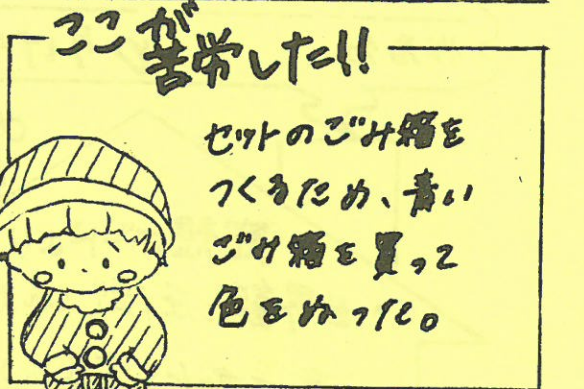 ここが
苦労した!!
セットのごみ箱を
つくるため、青い
ごみ箱を買って
色をぬった。